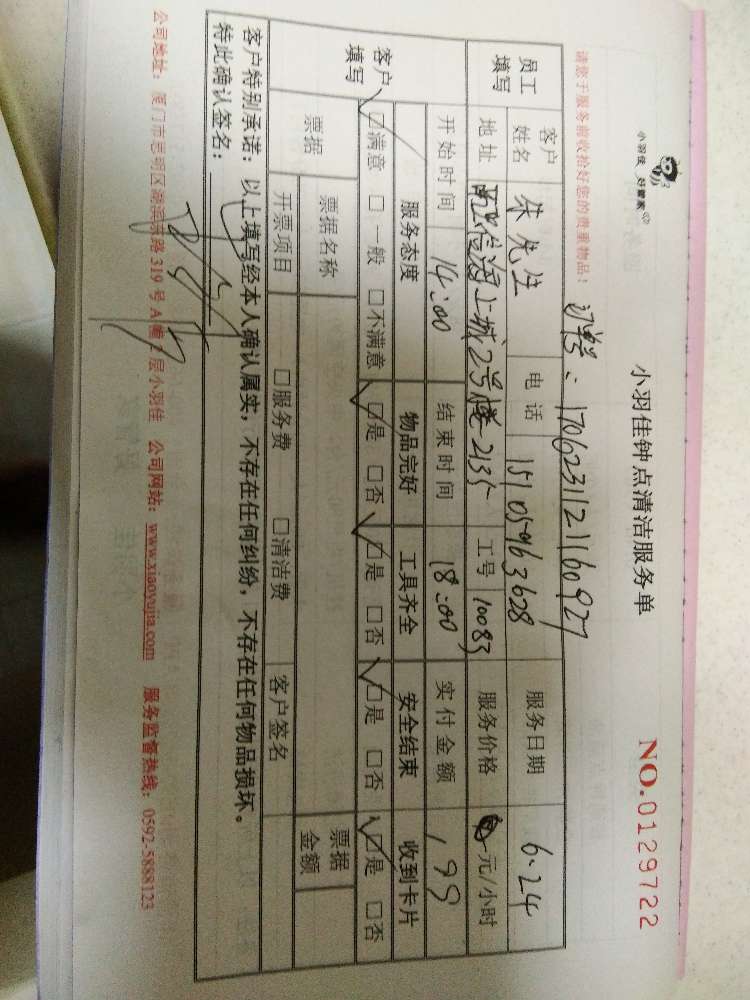 小羽佳 好管家
小羽佳钟点清洁服务单
NO.0129722
请您于服务前收拾好您的贵重物品！
170623112116092
员工填写 客户姓名 朱先生 电话 15105963628 服务日期 6.24
地址 海上城2号楼-2135 工号 10083 服务价格 元/小时
开始时间 14:00 结束时间 18:00 实付金额 199
客户填写 服务态度 物品完好 工具齐全 安全结束 收到卡片
☑满意 □一般 □不满意 ☑是 □否 ☑是 □否 ☑是 □否 ☑是 □否
票据 票据名称 票据金额
开票项目 □服务费 □清洁费 客户签名
客户特别承诺：以上填写经本人确认属实，不存在任何纠纷，不存在任何物品损坏。
特此确认签名：
公司地址：厦门市思明区湖滨东路319号A幢2层小羽佳 公司网站：www.xiaoyujia.com 服务监督热线：0592-5888123